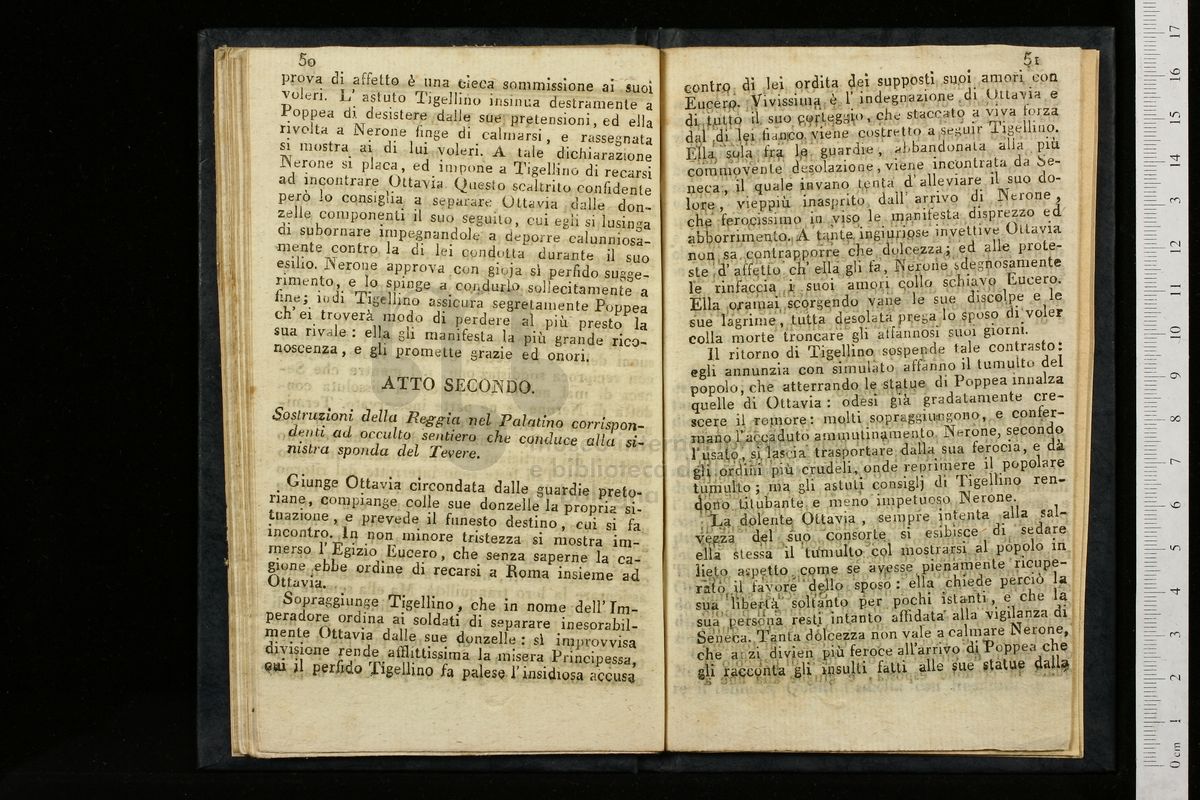 50
prova di affetto è una cieca sommissione ai suoi
voleri. L' astuto Tigellino insinua destramente a
Poppea di desistere dalle sue pretensioni, ed ella
rivolta a Nerone finge di calmarsi, e rassegnata
si mostra ai di lui voleri. A tale dichiarazione
Nerone si placa, ed impone a Tigellino di recarsi
ad incontrare Ottavia. Questo scaltrito confidente
però lo consiglia a separare Ottavia dalle don-
zelle componenti il suo seguito, cui egli si lusinga
di subornare impegnandole a deporre calunniosa-
mente contro la di lei condotta durante il suo
esilio. Nerone approva con gioja sì perfido sugge-
rimento, e lo spinge a condurlo sollecitamente a
fine; indi Tigellino assicura segretamente Poppea
ch' ei troverà modo di perdere al più presto la
sua rivale: ella gli manifesta la più grande rico-
noscenza, e gli promette grazie ed onori.
ATTO SECONDO.
Sostruzioni della Reggia nel Palatino corrispon-
denti ad occulto sentiero che conduce alla si-
nistra sponda del Tevere.
Giunge Ottavia circondata dalle guardie preto-
riane, compiange colle sue donzelle la propria si-
tuazione, e prevede il funesto destino, cui si fa
incontro. In non minore tristezza si mostra im-
merso l' Egizio Eucero, che senza saperne la ca-
gione ebbe ordine di recarsi a Roma insieme ad
Ottavia.
Sopraggiunge Tigellino, che in nome dell' Im-
peradore ordina ai soldati di separare inesorabil-
mente Ottavia dalle sue donzelle: sì improvvisa
divisione rende afflittissima la misera Principessa,
cui il perfido Tigellino fa palese l' insidiosa accusa
51
contro di lei ordita dei supposti suoi amori con
Eucero. Vivissima è l' indegnazione di Ottavia e
di tutto il suo corteggio, che staccato a viva forza
dal di lei fianco viene costretto a seguir Tigellino.
Ella sola fra le guardie, abbandonata alla più
commovente desolazione, viene incontrata da Se-
neca, il quale invano tenta d' alleviare il suo do-
lore, vieppiù inasprito dall' arrivo di Nerone,
che ferocissimo in viso le manifesta disprezzo ed
abborrimento. A tante ingiuriose invettive Ottavia
non sa contrapporre che dolcezza; ed alle prote-
ste d' affetto ch' ella gli fa, Nerone sdegnosamente
le rinfaccia i suoi amori collo schiavo Eucero.
Ella oramai scorgendo vane le sue discolpe e le
sue lagrime, tutta desolata prega lo sposo di voler
colla morte troncare gli affannosi suoi giorni.
Il ritorno di Tigellino sospende tale contrasto:
egli annunzia con simulato affanno il tumulto del
popolo, che atterrando le statue di Poppea innalza
quelle di Ottavia: odesi già gradatamente cre-
scere il romore: molti sopraggiungono, e confer-
mano l'accaduto ammutinamento. Nerone, secondo
l'usato, si lascia trasportare dalla sua ferocia, e dà
gli ordini più crudeli, onde reprimere il popolare
tumulto; ma gli astuti consiglj di Tigellino ren-
dono titubante e meno impetuoso Nerone.
La dolente Ottavia, sempre intenta alla sal-
vezza del suo consorte si esibisce di sedare
ella stessa il tumulto col mostrarsi al popolo in
lieto aspetto come se avesse pienamente ricupe-
rato il favore dello sposo: ella chiede perciò la
sua libertà soltanto per pochi istanti, e che la
sua persona resti intanto affidata alla vigilanza di
Seneca. Tanta dolcezza non vale a calmare Nerone,
che anzi divien più feroce all'arrivo di Poppea che
gli racconta gli insulti fatti alle sue statue dalla